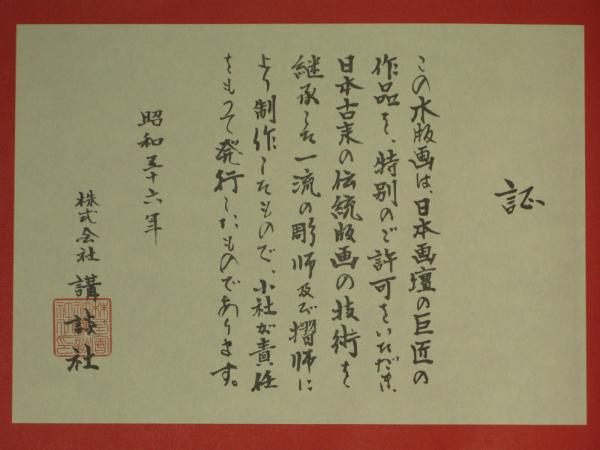 証
この木版画は、日本画壇の巨匠の
作品を、特別のご許可をいただき、
日本古来の伝統版画の技術を
継承した一流の彫師及び摺師に
より制作したもので、小社が責任
をもって発行したものであります。
昭和五十六年
株式会社 講談社